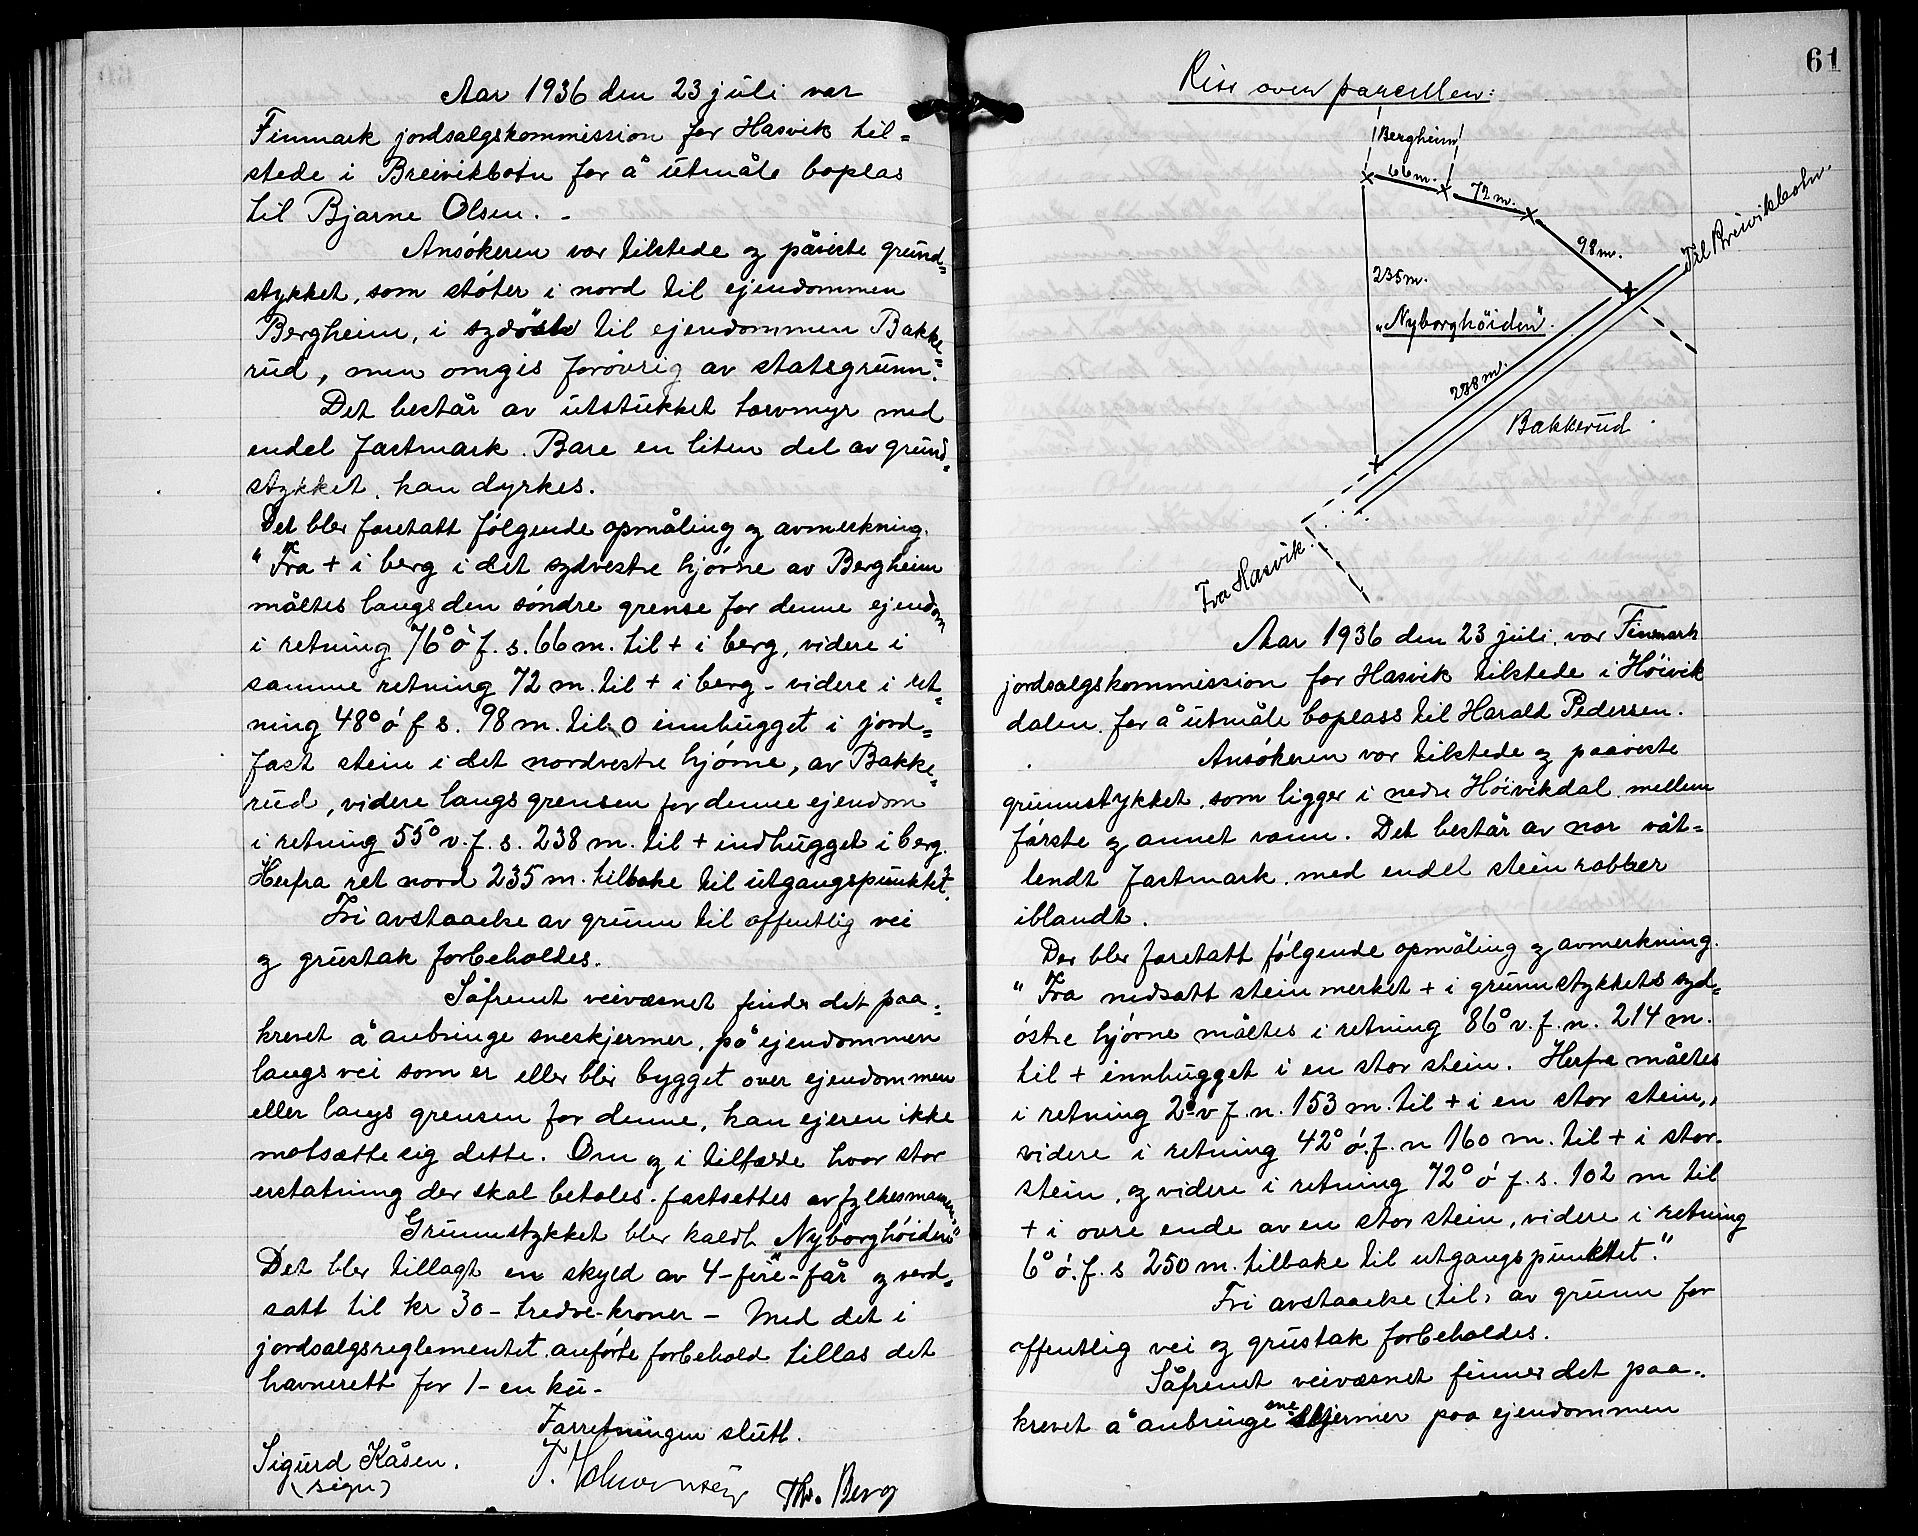 Aar 1936 den 23 juli var
Finmark jordsalgskommission for Hasvik til=
stede i Breivikbotn for å utmåle boplas
til Bjarne Olsen. -
Ansökeren var tilstede og påviste grund=
stykket, som stöter i nord til ejendommen
Bergheim, i sydöst til ejendommen Bakke=
rud, men omgis forövrig av statsgrunn.
Det består av utstukket torvmyr med
endel fastmark. Bare en liten del av grund=
stykket kan dyrkes.
Det blev foretatt fölgende opmåling og avmerkning.
"Fra + i berg i det sydvestre hjörne av Bergheim
måltes langs den söndre grense for denne ejendom
i retning 76° ö f. s. 66 m. til + i berg, videre i
samme retning 72 m. til + i berg - videre i ret=
ning 48° ö f s. 98 m. til o innhugget i jord=
fast stein i det nordvestre hjörne, av Bakke=
rud, videre langs grensen for denne ejendom
i retning 55° v. f. s. 238 m. til + indhugget i berg.
Herfra ret nord 235 m. tilbake til utgangspunktet."
Fri avstaaelse av grunn til offentlig vei
og grustak forbeholdes.
Såfremt veivæsnet finder det paa=
krevet å anbringe sneskjermer, på ejendommen
langs vei som er eller blir bygget over ejendommen
eller langs grensen for denne, kan ejeren ikke
motsætte sig dette. Om og i tilfælde hvor stor
erstatning der skal betales fastsettes av fylkesmannen.
Grunnstykket blev kaldt "Nyborghöiden"
Det blev tillagt en skyld av 4-fire-får og verd=
satt til kr 30 - tredve-kroner - Med det i
jordsalgsreglementet anförte forbehold tillas det
havnerett for 1 - en ku -
Forretningen slutt.
Sigurd Kåsen.
(sign)
Th. Berg
61
Riss over parcellen:
Bergheim
66 m.
72 m.
98 m.
Til Breivikbotn.
235 m.
"Nyborghöiden".
238 m.
Bakkerud.
Fra Hasvik.
Aar 1936 den 23 juli var Finmark
jordsalgskommission for Hasvik tilstede i Höivik
dalen for å utmåle boplass til Harald Pedersen.
Ansökeren var tilstede og paaviste
grunnstykket, som ligger i nedre Höivikdal mellem
förste og annet vann. Det består av nor våt=
lendt fastmark med endel stein rabber
iblandt.
Der blev foretatt fölgende opmåling og avmerkning.
"Fra nedsatt stein merket + i grunnstykkets syd=
östre hjörne måltes i retning 86° v. f. n. 214 m.
til + innhugget i en stor stein. Herfra måltes
i retning 2° v f. n. 153 m. til + i en stor stein,
videre i retning 42° ö. f. n 160 m. til + i stor
stein, og videre i retning 72° ö f. s. 102 m til
+ i övre ende av en stor stein, videre i retning
6° ö. f. s 250 m. tilbake til utgangspunktet."
Fri avstaaelse (til) av grunn for
offentlig vei og grustak forbeholdes.
Såfremt veivæsnet finner det paa=
krevet å anbringe sneskjermer paa ejendommen